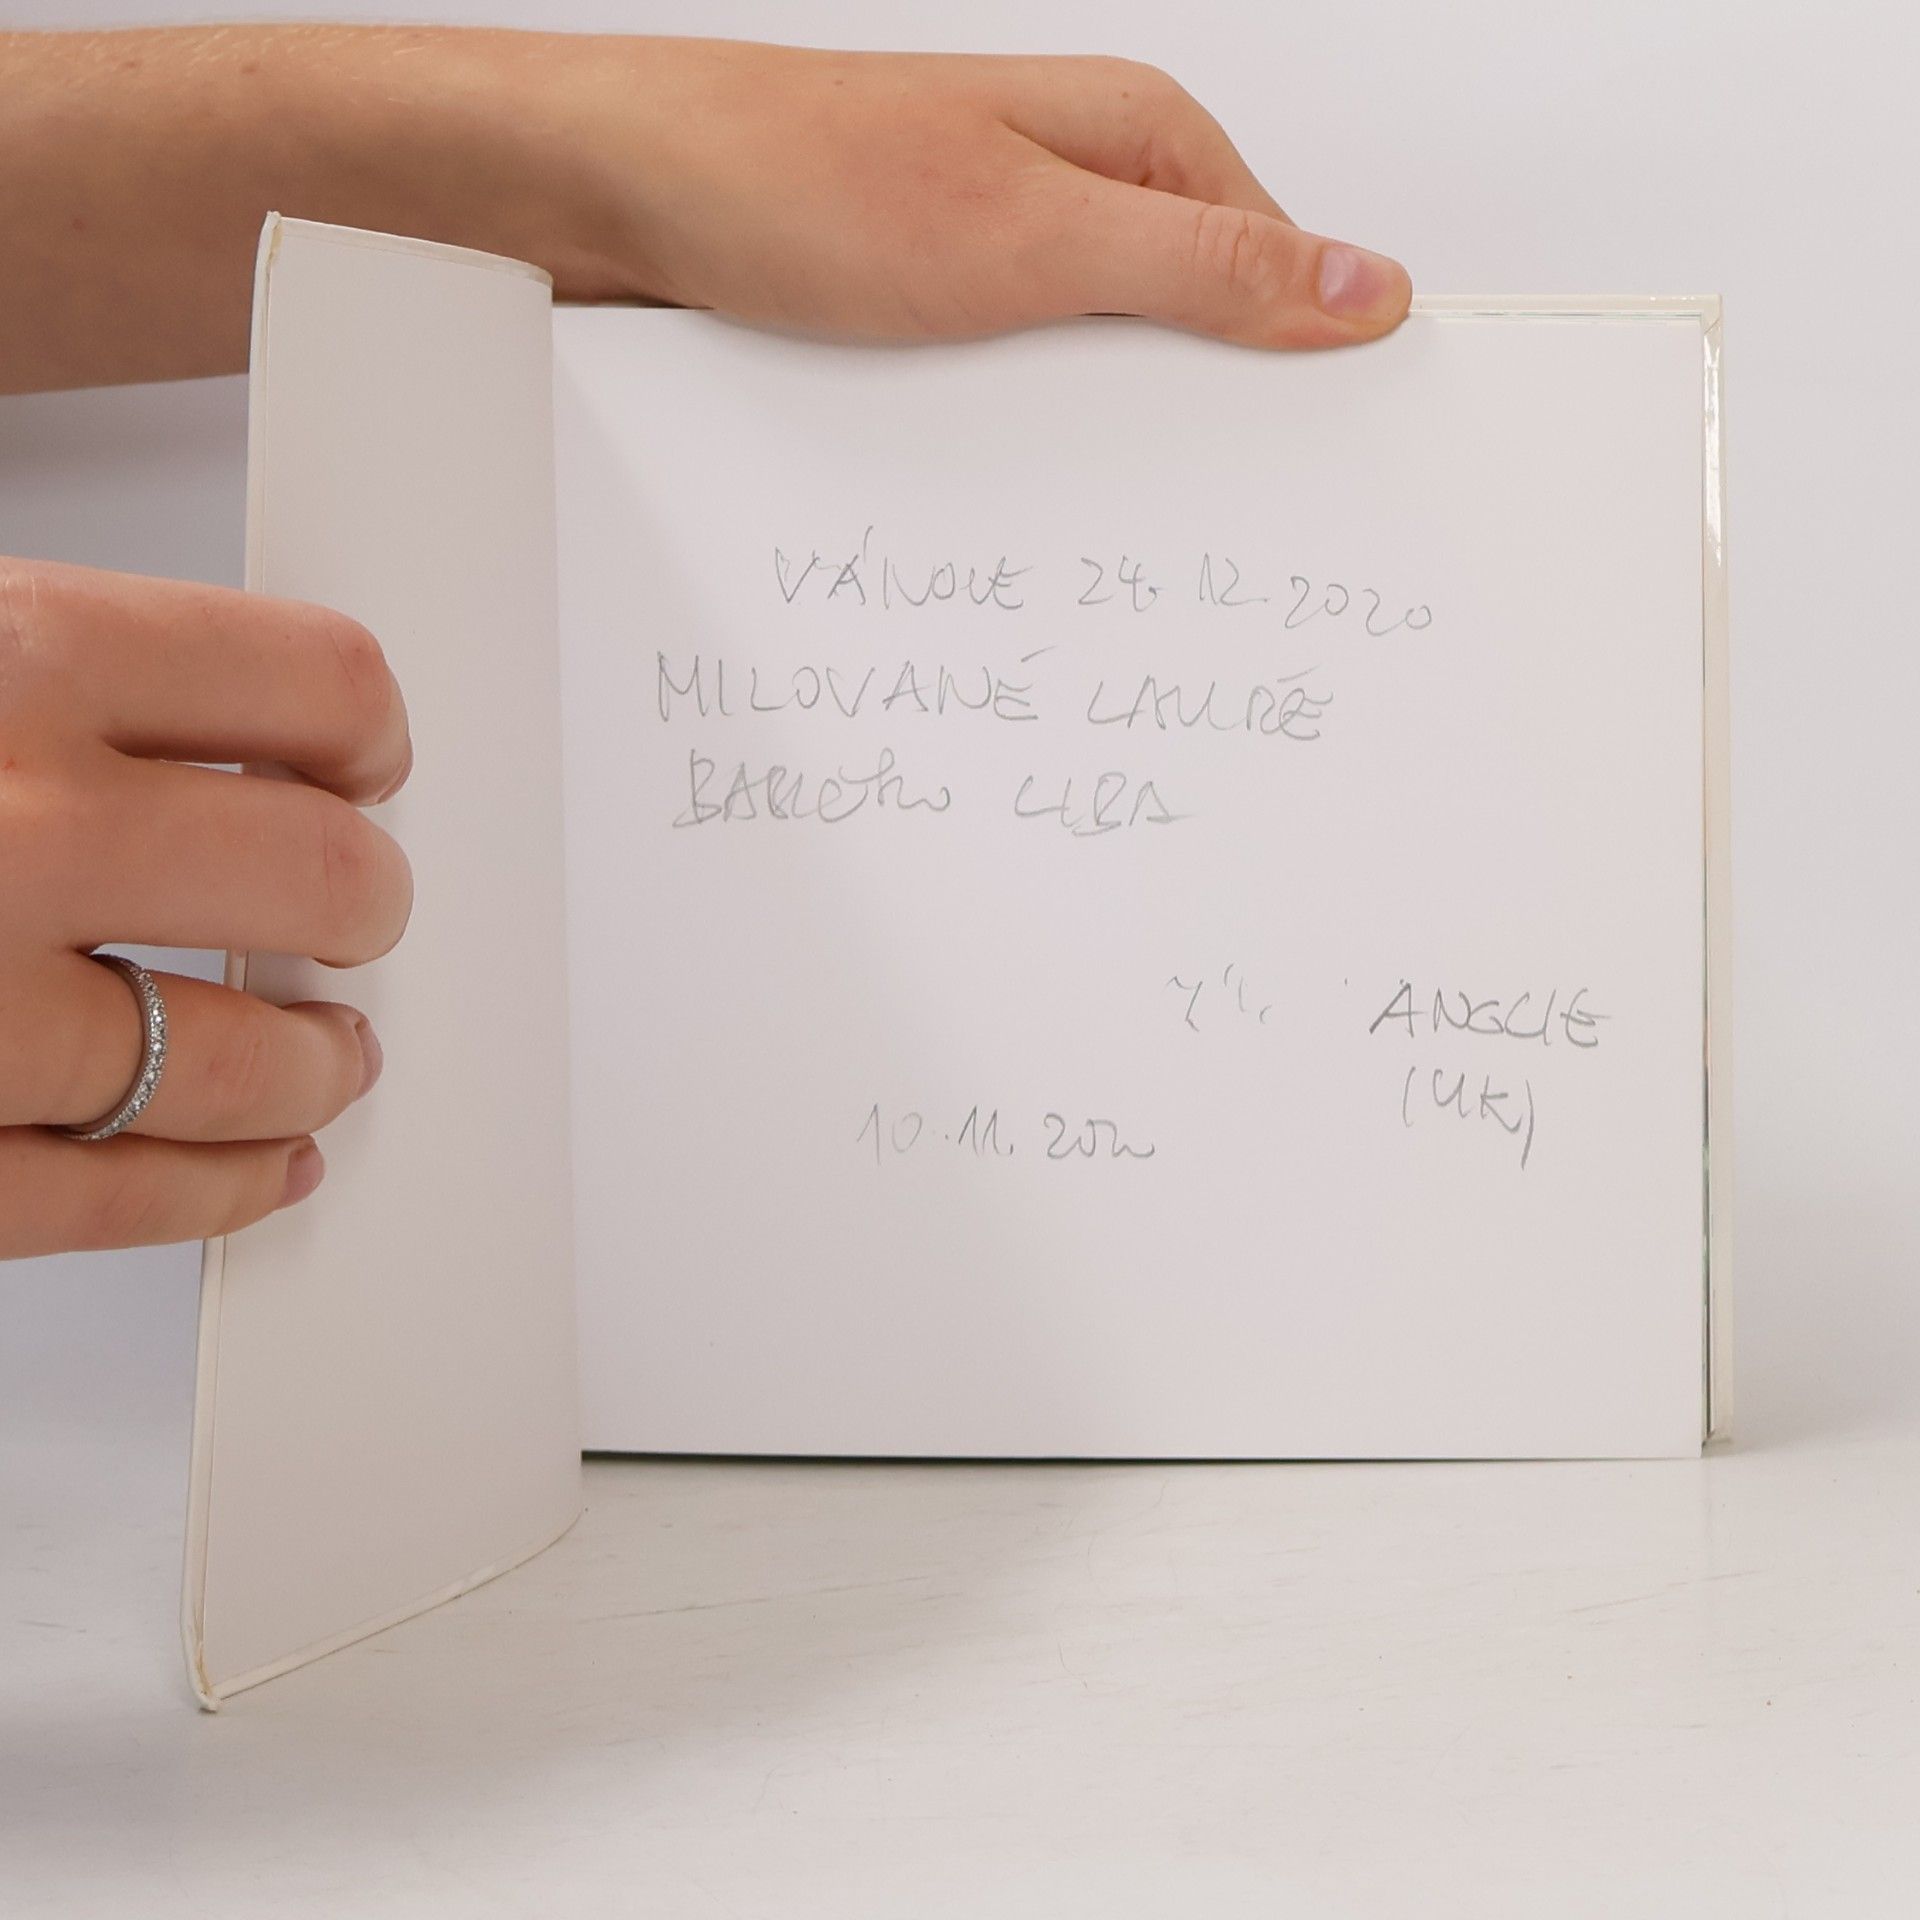 VÁNOCE 24. 12 2020
MILOVANÉ LAUŘE
LIBA
ANGLIE
(UK)
10.11. 2020